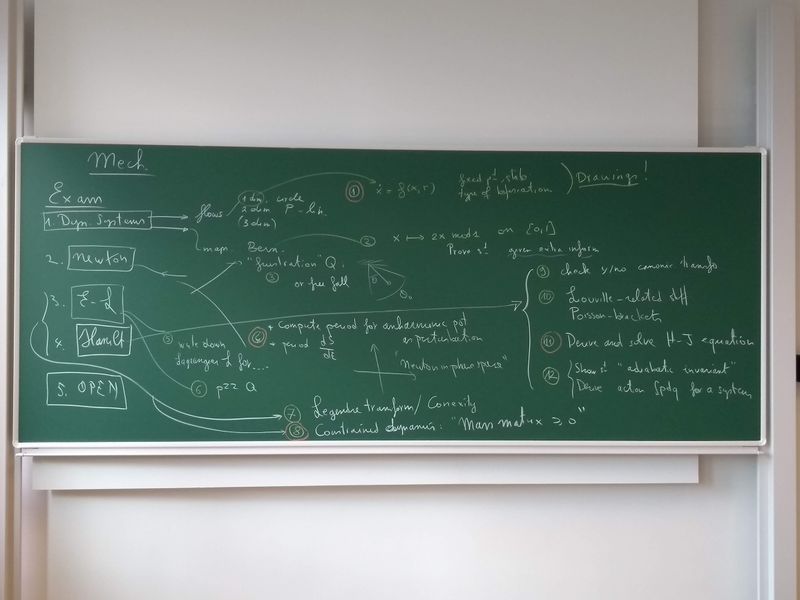 Mech.
Exam
1. Dyn. Systems
flows
1 dim. circle
2 dim P-lin.
(3 dim)
① ẋ = f(x,r)
fixed pt stab
type of bifurcation
Drawings!
map. Bern.
② x ↦ 2x mod 1 on [0,1]
Prove st given extra inform
2. Newton
"frustration" Q.
③
or free fall
θ
θ₀
3. E-L
4. Hamilt
5. OPEN
④ * Compute period for anharmonic pot
as perturbation
* period dS/dE
"Newton in phase space"
⑤ write down
Lagrangian L for...
⑥ p22 Q
⑦ Legendre transform / Conexity
⑧ Constrained dynamics: "Mass matrix ≥ 0"
⑨ check y/no canonic transfo
⑩ Liouville-related stff
Poisson-brackets
⑪ Derive and solve H-J equation
⑫ Show st "adiabatic invariant"
Derive action ∫pdq for a system